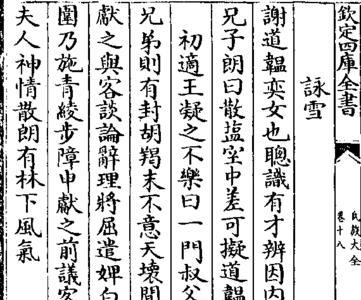 欽定四庫全書
氏族大全
卷十八
詠雪
謝道韞奕女也聰識有才辨因内
兄子朗曰散塩空中差可擬道韞
初適王凝之不樂曰一門叔父
兄弟則有封胡羯末不意天壤間
獻之與客談論辭理將屈遣婢白
圍乃施青綾步障申獻之前議客
夫人神情散朗有林下風氣